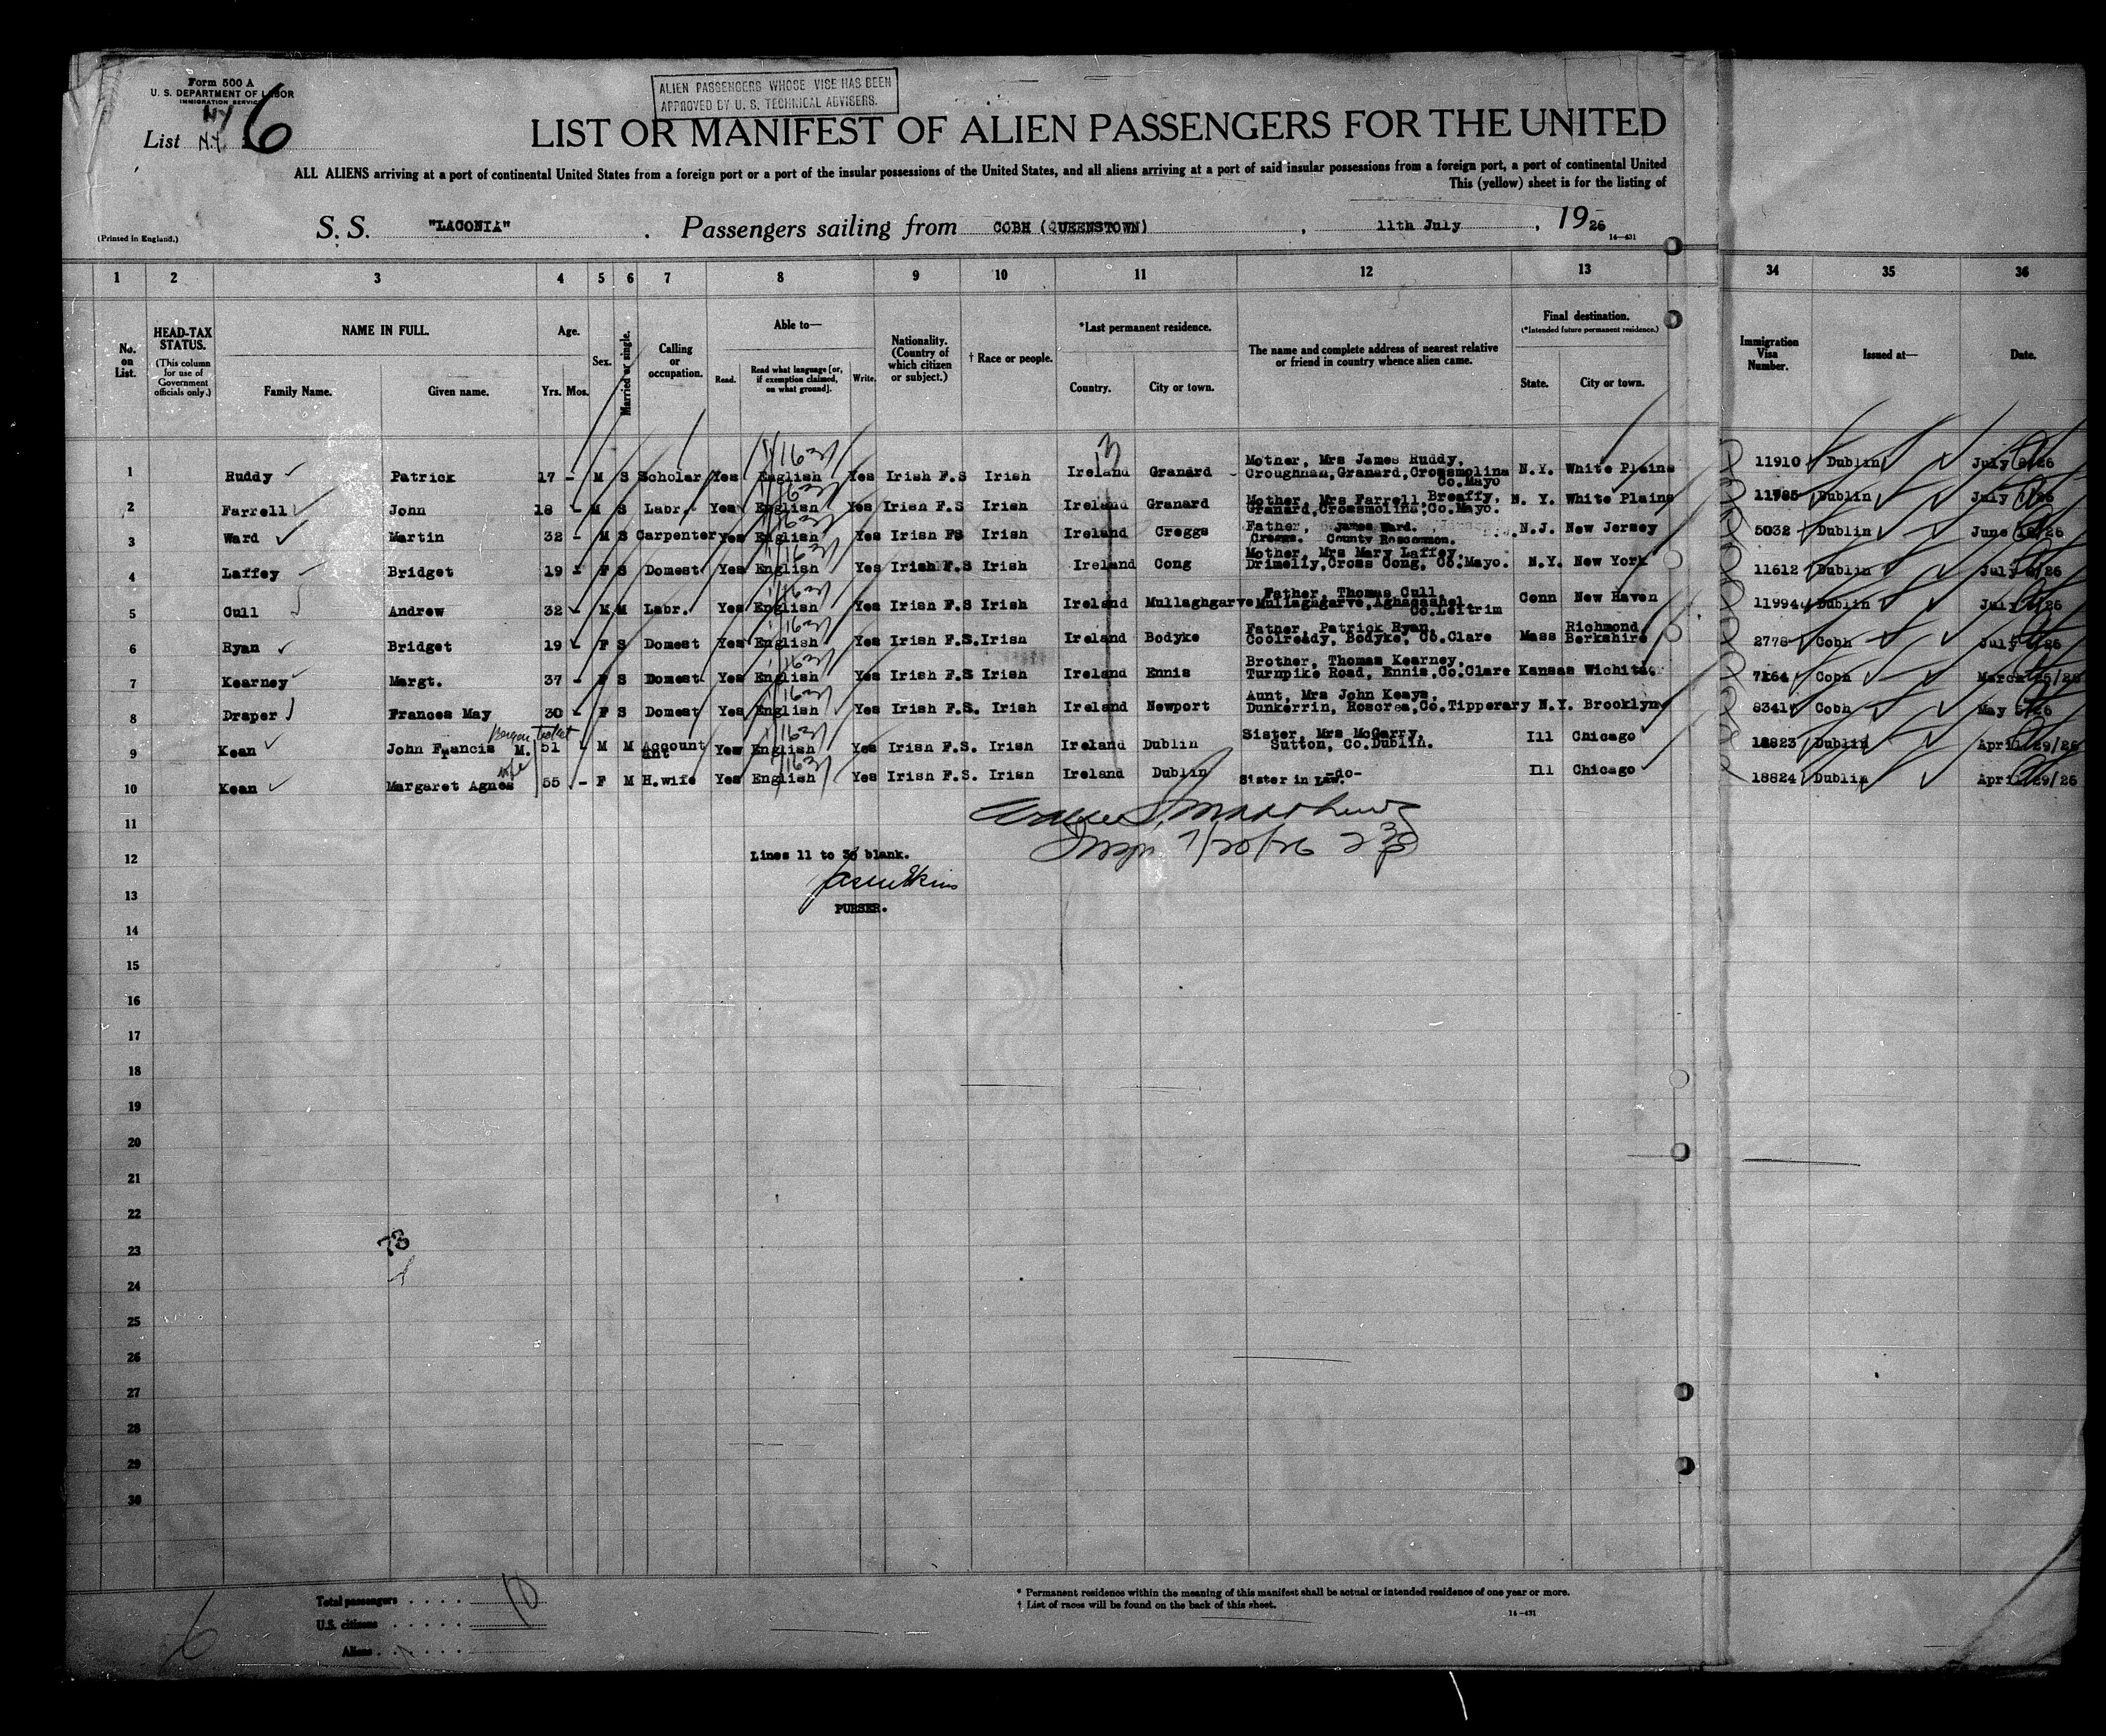 Form 500 A
U. S. DEPARTMENT OF LABOR
IMMIGRATION SERVICE
NY
List N.Y. 6
ALIEN PASSENGERS WHOSE VISE HAS BEEN
APPROVED BY U. S. TECHNICAL ADVISERS.
LIST OR MANIFEST OF ALIEN PASSENGERS FOR THE UNITED
ALL ALIENS arriving at a port of continental United States from a foreign port or a port of the insular possessions of the United States, and all aliens arriving at a port of said insular possessions from a foreign port, a port of continental United
This (yellow) sheet is for the listing of
(Printed in England.)
S. S. "LACONIA" . Passengers sailing from COBH (QUEENSTOWN) , 11th July , 1926
14—431
1 2 3 4 5 6 7 8 9 10 11 12 13 34 35 36
No. on List.
HEAD-TAX STATUS.
(This column for use of Government officials only.)
NAME IN FULL.
Family Name. Given name.
Age.
Yrs. Mos.
Sex.
Married or single.
Calling or occupation.
Able to—
Read. Read what language [or, if exemption claimed, on what ground]. Write.
Nationality. (Country of which citizen or subject.)
† Race or people.
*Last permanent residence.
Country. City or town.
The name and complete address of nearest relative or friend in country whence alien came.
Final destination.
(*Intended future permanent residence.)
State. City or town.
Immigration Visa Number.
Issued at—
Date.
1 Ruddy Patrick 17 - M S Scholar Yes English Yes Irish F.S Irish Ireland Granard Mother, Mrs James Ruddy, Croughnan, Granard, Crossmolina Co.Mayo N.Y. White Plains 11910 Dublin July /26
2 Farrell John 18 - M S Labr. Yes English Yes Irish F.S Irish Ireland Granard Mother, Mrs Farrell, Breaffy, Granard, Crossmolina, Co.Mayo. N. Y. White Plains 11785 Dublin July /26
3 Ward Martin 32 - M S Carpenter Yes English Yes Irish FS Irish Ireland Creggs Father, James Ward. Creggs. County Roscommon. N.J. New Jersey 5032 Dublin June /26
4 Laffey Bridget 19 - F S Domest Yes English Yes Irish F.S Irish Ireland Cong Mother, Mrs Mary Laffey, Drimelly, Cross Cong, Co.Mayo. N.Y. New York 11612 Dublin July /26
5 Cull Andrew 32 - M M Labr. Yes English Yes Irish F.S Irish Ireland Mullaghgarve Father, Thomas Cull Mullaghgarve, Co.Leitrim Conn New Haven 11994 Dublin July /26
6 Ryan Bridget 19 - F S Domest Yes English Yes Irish F.S. Irish Ireland Bodyke Father, Patrick Ryan, Coolready, Bodyke, Co.Clare Mass Richmond Berkshire 2778 Cobh July /26
7 Kearney Margt. 37 - F S Domest Yes English Yes Irish F.S Irish Ireland Ennis Brother, Thomas Kearney, Turnpike Road, Ennis, Co.Clare Kansas Wichita. Cobh March 25/26
8 Draper Frances May 30 - F S Domest Yes English Yes Irish F.S. Irish Ireland Newport Aunt, Mrs John Keays, Dunkerrin, Roscrea, Co.Tipperary N.Y. Brooklyn 8341 Cobh May /26
9 Kean John Francis M. 51 - M M Accountant Yes English Yes Irish F.S. Irish Ireland Dublin Sister, Mrs McGarry, Sutton, Co.Dublin. Ill Chicago 18823 Dublin April 29/26
wife
10 Kean Margaret Agnes 55 - F M H.wife Yes English Yes Irish F.S. Irish Ireland Dublin Sister in Law. -do- Ill Chicago 18824 Dublin April 29/26
11
Insp. 7/20/26 2 30
12 Lines 11 to 30 blank.
13
PURSER.
14
15
16
17
18
19
20
21
22
23
24
25
26
27
28
29
30
Total passengers . . . . 10
U.S. citizens . . . . .
Aliens . . . . . .
6
* Permanent residence within the meaning of this manifest shall be actual or intended residence of one year or more.
† List of races will be found on the back of this sheet.
14—431